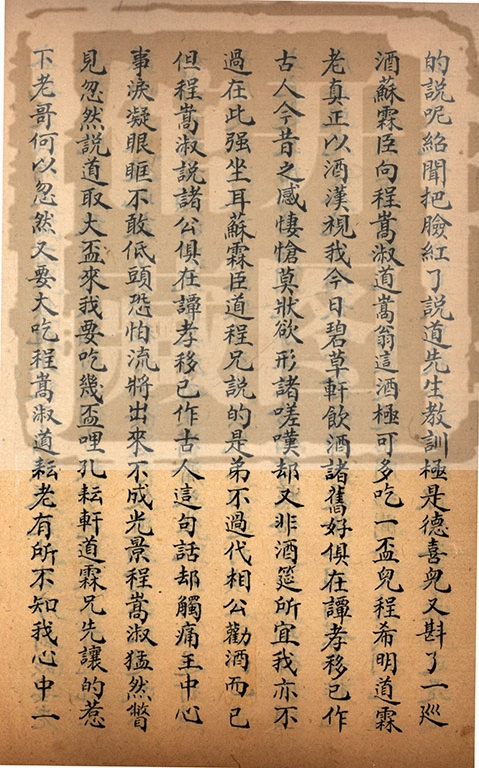 的說呢紹聞把臉紅了說道先生教訓極是德喜兒又斟了一巡
酒蘇霖臣向程嵩淑道嵩翁這酒極可多吃一盃兒程希明道霖
老真正以酒漢視我今日碧草軒飲酒諸舊好俱在譚孝移已作
古人今昔之感悽愴莫狀欲形諸嗟嘆却又非酒筵所宜我亦不
過在此强坐耳蘇霖臣道程兄說的是弟不過代相公勸酒而已
但程嵩淑說諸公俱在譚孝移已作古人這句話却觸痛王中心
事淚凝眼眶不敢低頭恐怕流將出來不成光景程嵩淑猛然瞥
見忽然說道取大盃來我要吃幾盃哩孔耘軒道霖兄先讓的惹
下老哥何以忽然又要大吃程嵩淑道耘老有所不知我心中一